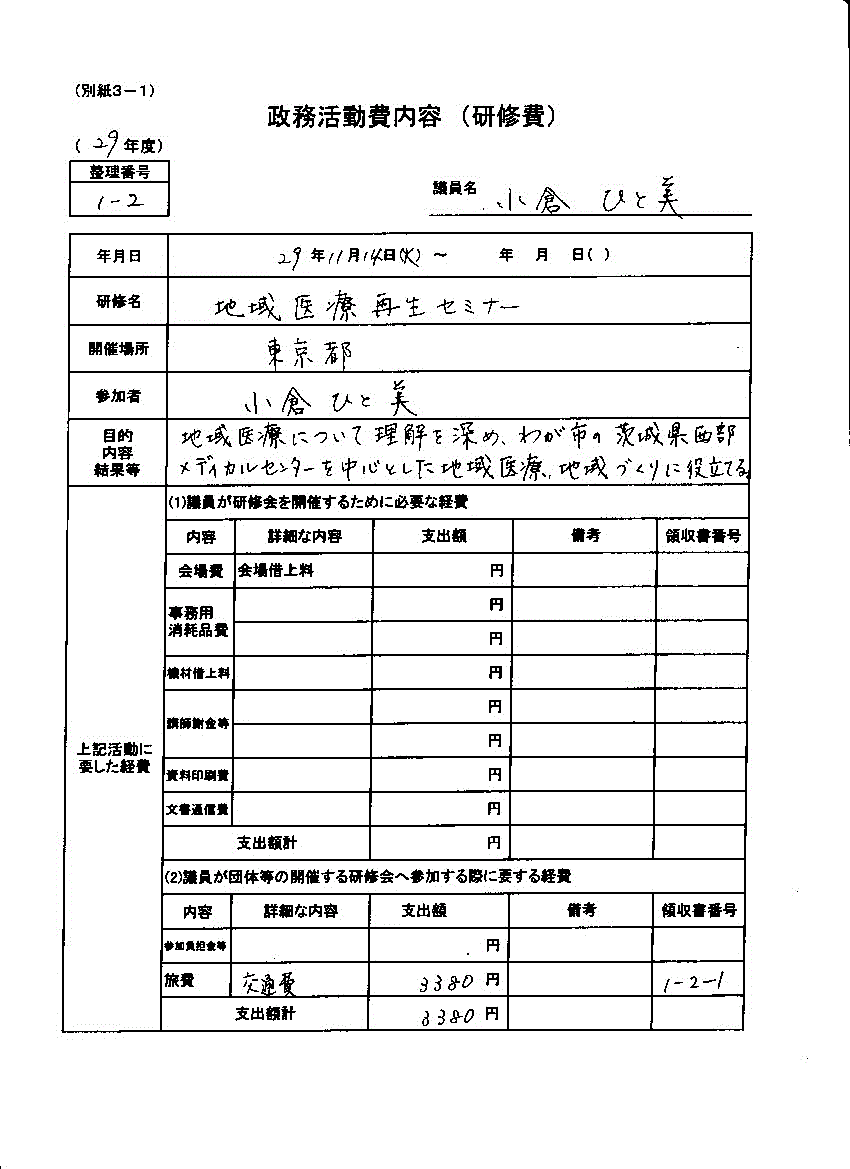 （別紙3－1）
政務活動費内容（研修費）
（29年度）
整理番号
1-2
議員名 小倉 ひと美
年月日 29年11月14日(火) ～ 年 月 日( )
研修名 地域医療再生セミナー
開催場所 東京都
参加者 小倉 ひと美
目的 内容 結果等 地域医療について理解を深め、わが市の茨城県西部
メディカルセンターを中心とした地域医療、地域づくりに役立てる。
上記活動に要した経費
(1)議員が研修会を開催するために必要な経費
内容 詳細な内容 支出額 備考 領収書番号
会場費 会場借上料 円
事務用消耗品費 円
円
機材借上料 円
講師謝金等 円
円
資料印刷費 円
文書通信費 円
支出額計 円
(2)議員が団体等の開催する研修会へ参加する際に要する経費
内容 詳細な内容 支出額 備考 領収書番号
参加負担金等 円
旅費 交通費 3380 円 1-2-1
支出額計 3380 円